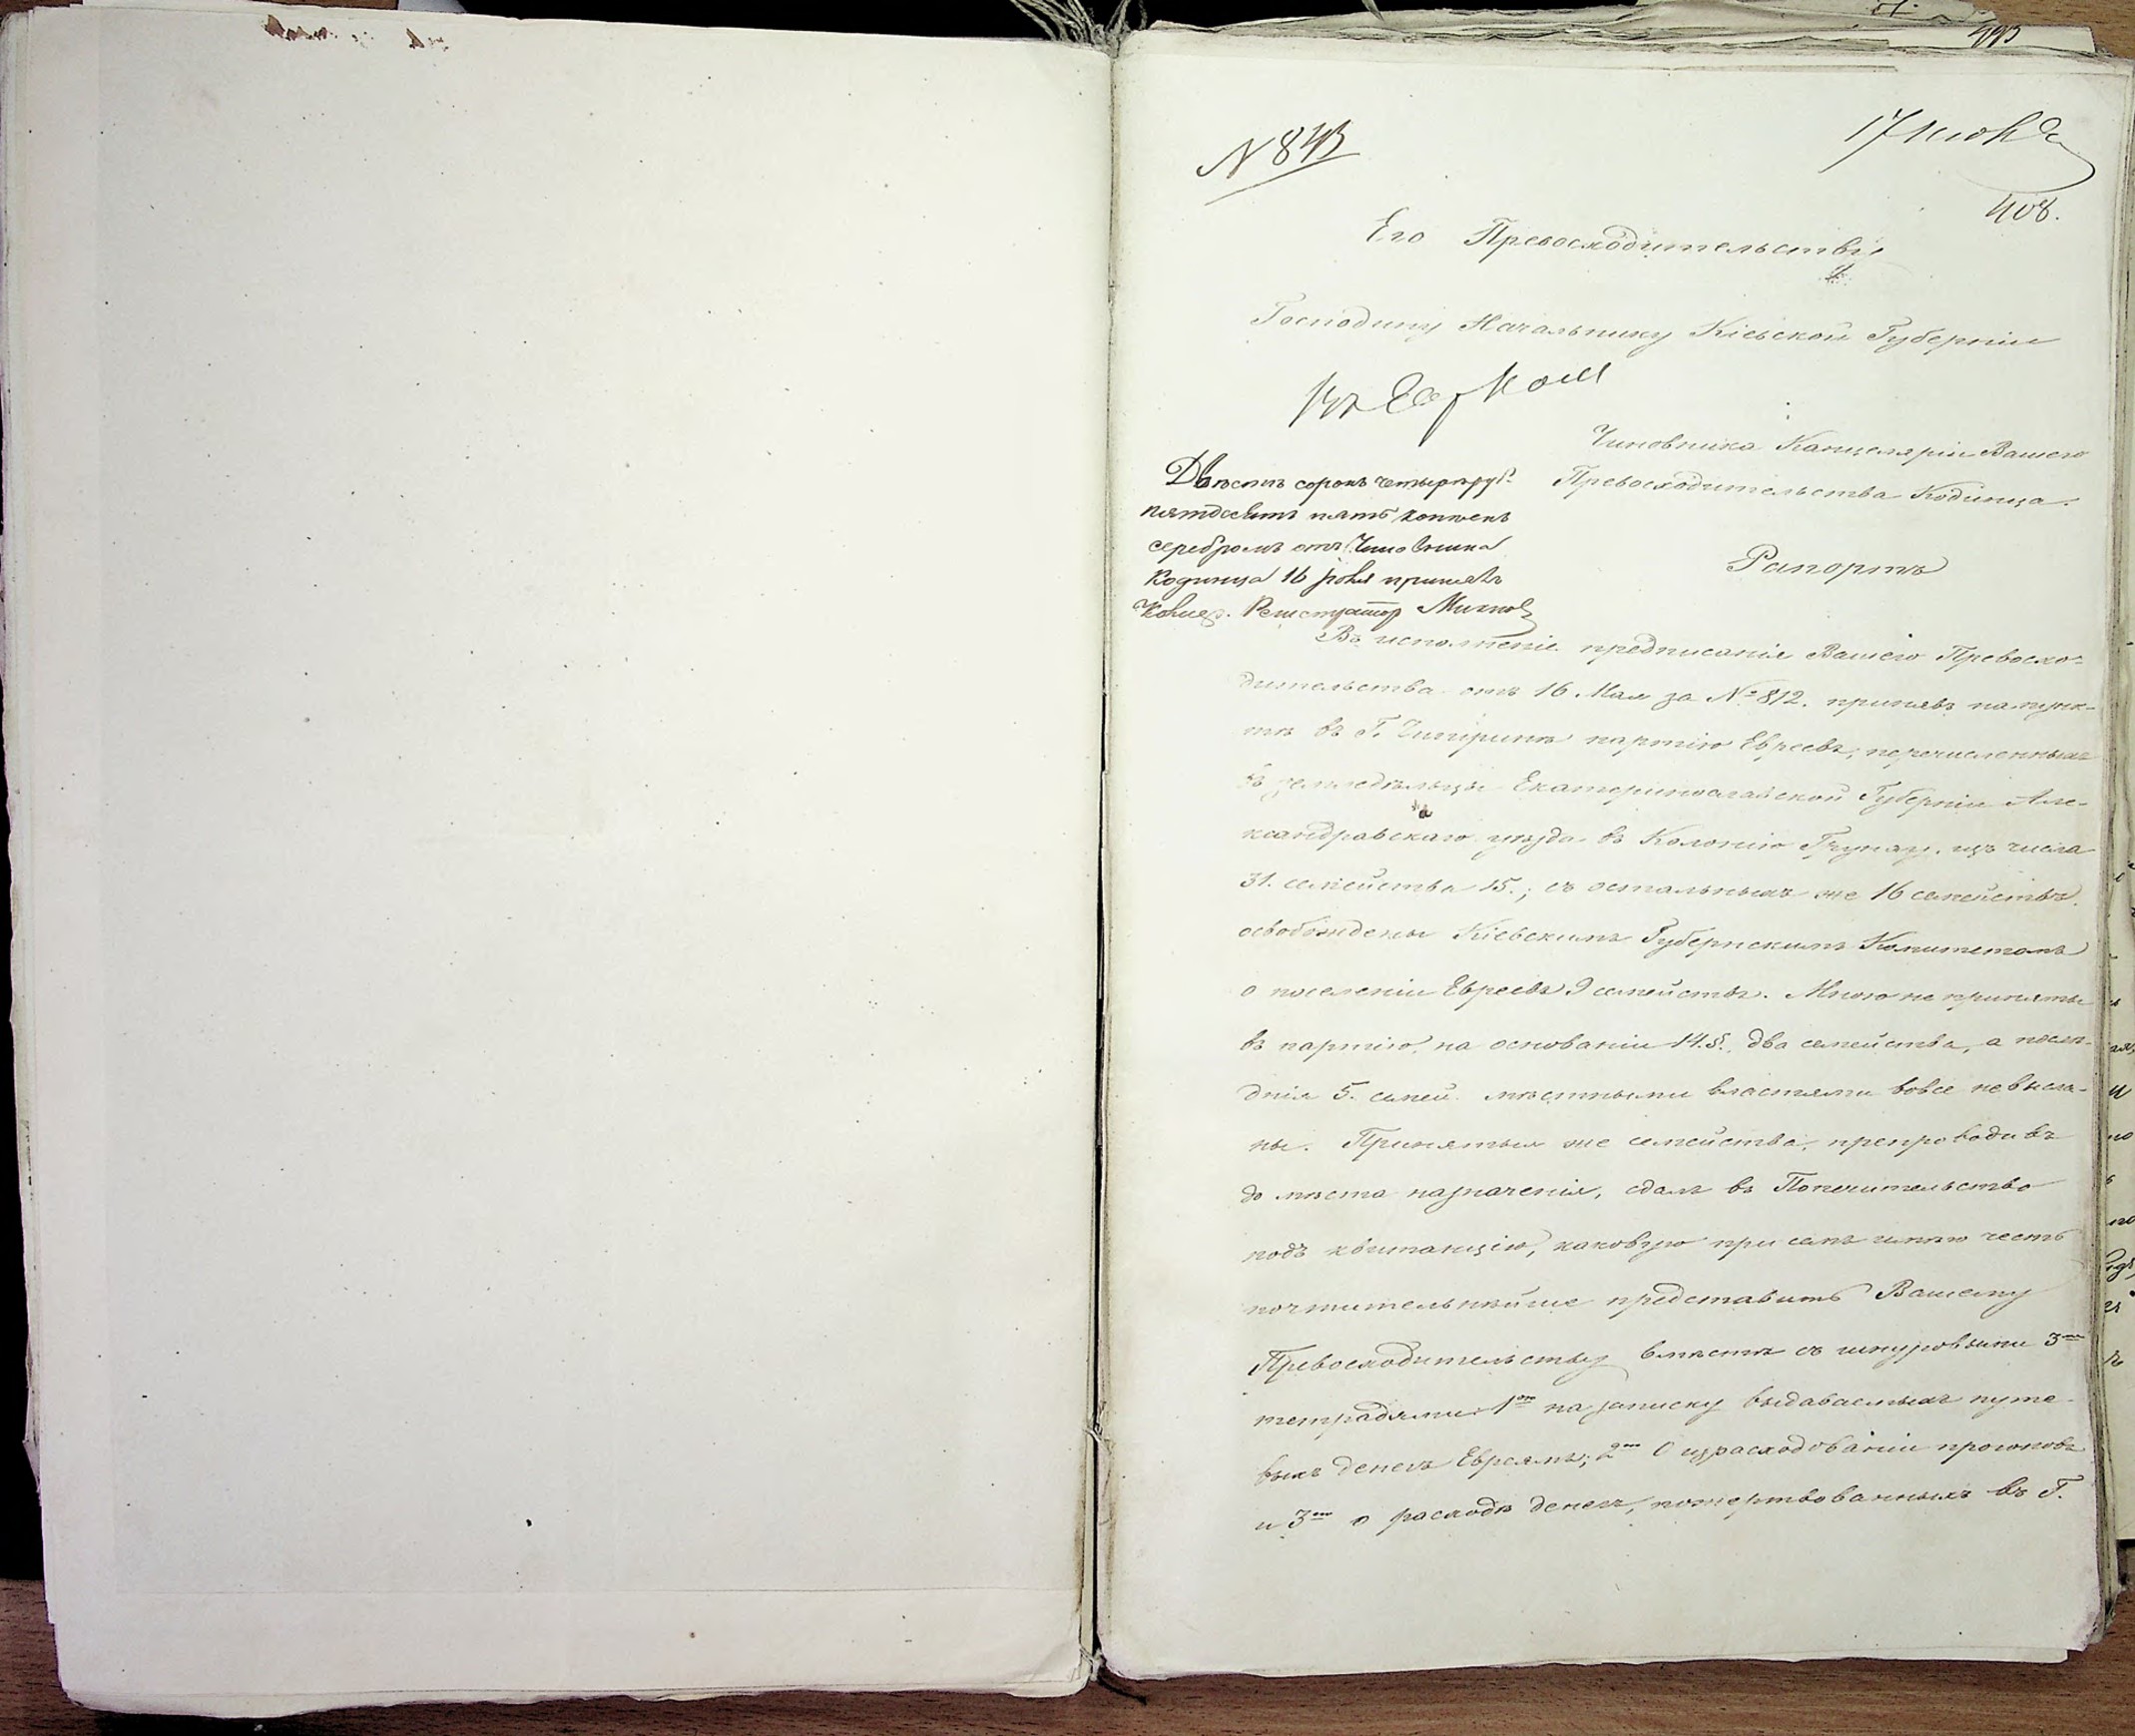 17 июня
408.
Его Превосходительству
Господину Начальнику Кіевской Губерніи
Чиновника Канцеляріи Вашего
Превосходительства Кодинца.
Рапортъ
Двѣсти сорокъ четыре руб.
пятдесятъ пять копѣекъ
серебромъ отъ Чиновника
Кодинца 16 Іюня принялъ
Регистраторъ
Въ исполненіе предписанія Вашего Превосхо-
дительства отъ 16 Мая за № 812. принявъ на пунк-
тѣ въ Г. Чигиринѣ партію Евреевъ, перечисленныхъ
въ земледѣльцы Екатеринославской Губерніи Але-
ксандравскаго уѣзда въ Колонію Грунау, изъ числа
31. семейства 15.; съ остальныхъ же 16 семействъ
освобождены Кіевскимъ Губернскимъ Комитетомъ
о поселеніи Евреевъ 9 семействъ. Мною не приняты
въ партію, на основаніи 14. §. два семейства, а послѣ-
днія 5. семей. мѣстными властями вовсе не высла-
ны. Принятыя же семейства, препроводивъ
до мѣста назначенія, сдалъ въ Попечительство
подъ квитанцію, каковую при семъ имѣю честь
почтительнѣйше представить Вашему
Превосходительству вмѣстѣ съ шнуровыми 3мя
тетрадями: 1ю на записку выдаваемыхъ путе-
выхъ денегъ Евреямъ; 2ю О израсходованіи прогоновъ
и 3ю о расходѣ денегъ, пожертвованныхъ въ Г.